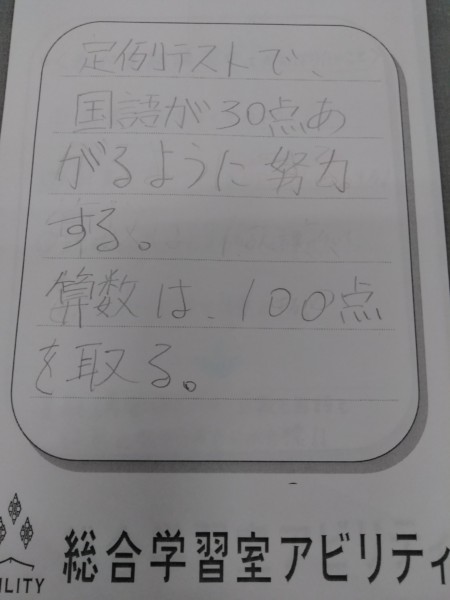 定例テストで、
国語が30点あ
がるように努力
する。
算数は、100点
を取る。
総合学習室アビリティ
ILITY